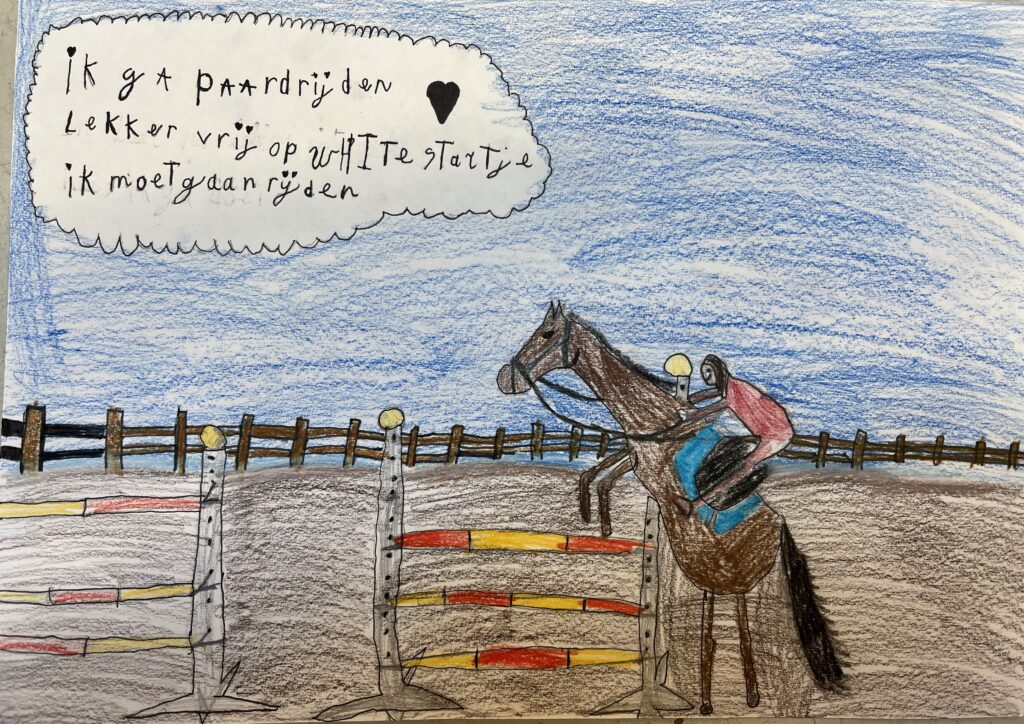 ik gA pAArdrijden
Lekker vrij op WHITe startje
ik moet gaan rijden